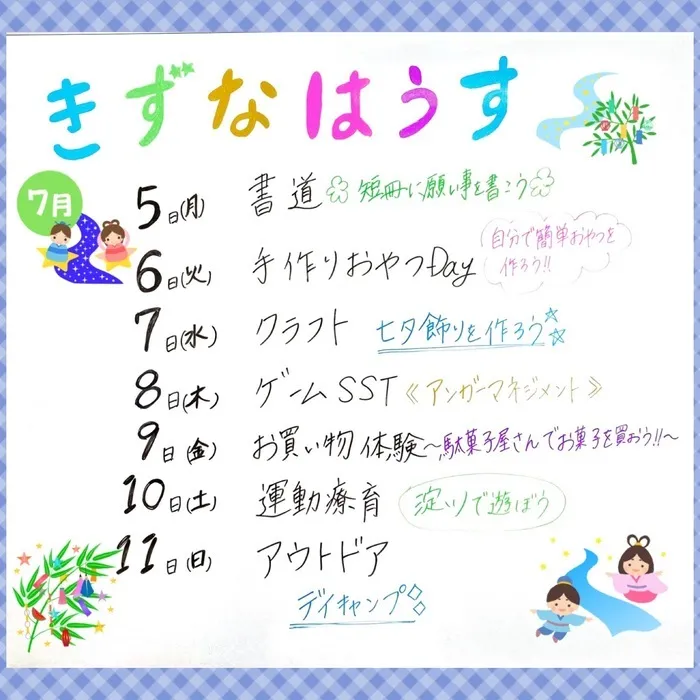 きずなはうす
7月
5日(月) 書道 短冊に願い事を書こう
6日(火) 手作りおやつDay 自分で簡単おやつを
作ろう!!
7日(水) クラフト 七夕飾りを作ろう
8日(木) ゲームSST 《アンガーマネジメント》
9日(金) お買い物体験〜駄菓子屋さんでお菓子を買おう!!〜
10日(土) 運動療育 淀川で遊ぼう
11日(日) アウトドア
デイキャンプ